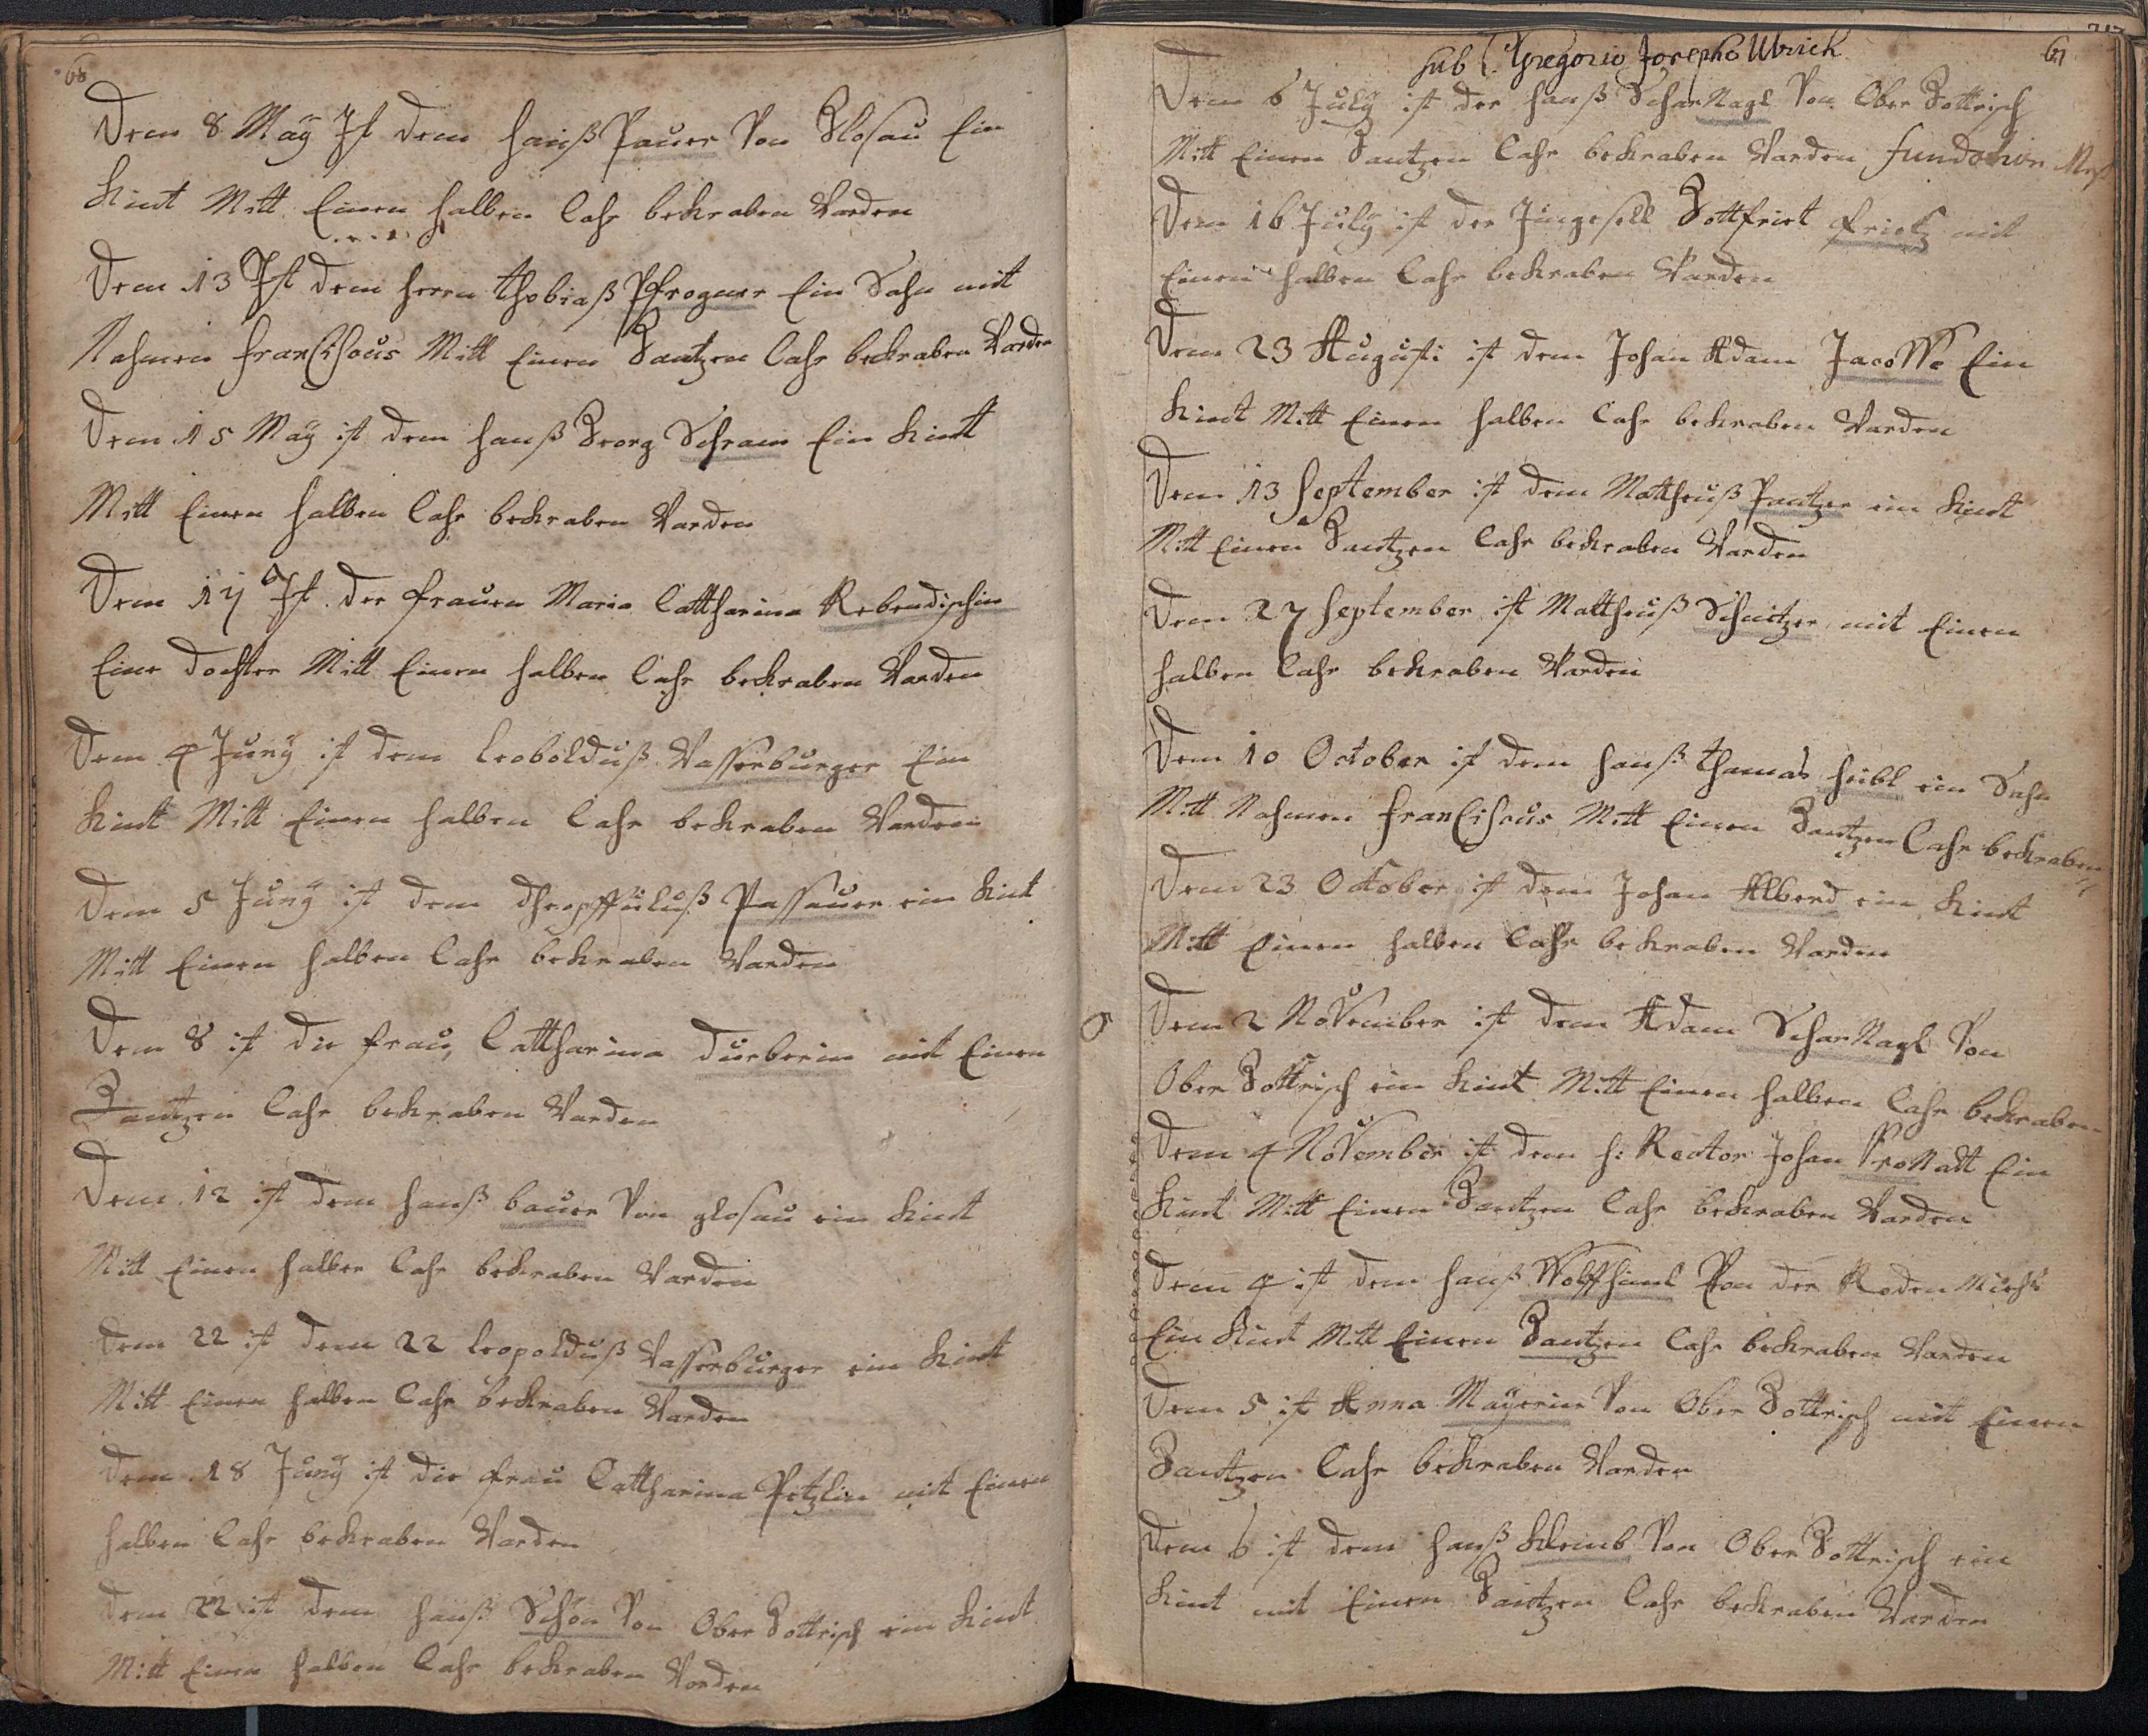 68
Dem 8 Maÿ Ist dem hanß Pauer Von Glosau Ein
Kindt Mitt Einen halben Cahr bekraben Varden
Dem 13 Ist dem herrn thobiaß Pfrogner Ein Sohn mit
Nahmen franCihcus Mitt Einen Gantzen Cahr bekraben Varden
Dem 15 Maÿ ist dem hanß Georg Schram Ein Kindt
Mitt Einen halben Cahr bekraben Varden
Dem 17 Ist der frauen Maria Cattharina Rebendischin
Eine dochter Mitt Einen halben Cahr bekraben Varden
Dem 4 Junÿ ist dem Leobolduß Vasserburger Ein
Kindt Mitt Einen halben Cahr bekraben Varden
Dem 5 Junÿ ist dem Passauer ein Kint
Mitt Einen halben Cahr bekraben Varden
Dem 8 ist die frau Cattharina Durberin mit Einen
Gantzen Cahr bekraben Varden
Dem 12 ist dem hanß bauer Von glosau ein Kindt
Mitt Einen halben Cahr bekraben Varden
Dem 22 ist dem 22 Leopolduß Vasserburger ein Kindt
Mitt Einen halben Cahr bekraben Varden
Dem 18 Junÿ ist die frau Cattharina Petzlin mit Einen
halben Cahr bekraben Varden
Dem 22 ist dem hanß Schön Von Ober Gottrisch ein Kindt
Mitt Einen halben Cahr bekraben Varden
sub Gregorio Josepho Ulrich
Dem 6 Julÿ ist der hanß ScharNagl Von Ober Gottrisch
Mitt Einen Gantzen Cahr bekraben Varden
Dem 16 Julÿ ist der Jungesell Gottfriet frietz mit
Einen halben Cahr bekraben Varden
Dem 23 Augusti ist dem Johan Adam Ein
Kindt Mitt Einen halben Cahr bekraben Varden
Dem 13 September ist dem Mattheuß Pantzer ein Kindt
Mitt Einen Gantzen Cahr bekraben Varden
Dem 27 September ist Mattheuß Schnitzer mit Einen
halben Cahr bekraben Varden
Dem 10 October ist dem hanß thamas heibl ein Sohn
Mitt Nahmen franCihcus Mitt Einen Gantzen Cahr bekraben
Dem 23 October ist dem Johan Alberd ein Kindt
Mitt Einen halben Cahr bekraben Varden
Dem 2 November ist dem Adam ScharNagl Von
Ober Gottrisch ein Kindt Mitt Einen halben Cahr bekraben
Dem 4 November ist dem h: Rector Johan Ein
Kindt Mitt Einen Gantzen Cahr bekraben Varden
Dem 4 ist dem hanß Von der Roden
Ein Kindt Mitt Einen Gantzen Cahr bekraben Varden
Dem 5 ist Anna Maÿerin Von Ober Gottrisch mit Einen
Gantzen Cahr bekraben Varden
Dem 6 ist dem hanß Klemb Von Ober Gottrisch ein
Kindt mit Einen Gantzen Cahr bekraben Varden